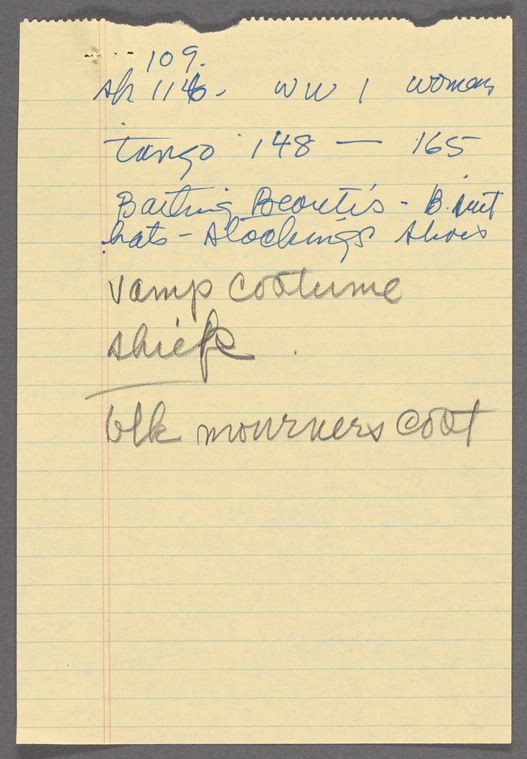 109.
WW 1 woman
tango 148 — 165
Bathing Beautis - B.
hats - stockings shoes
vamp costume
shiek
blk mourners coat